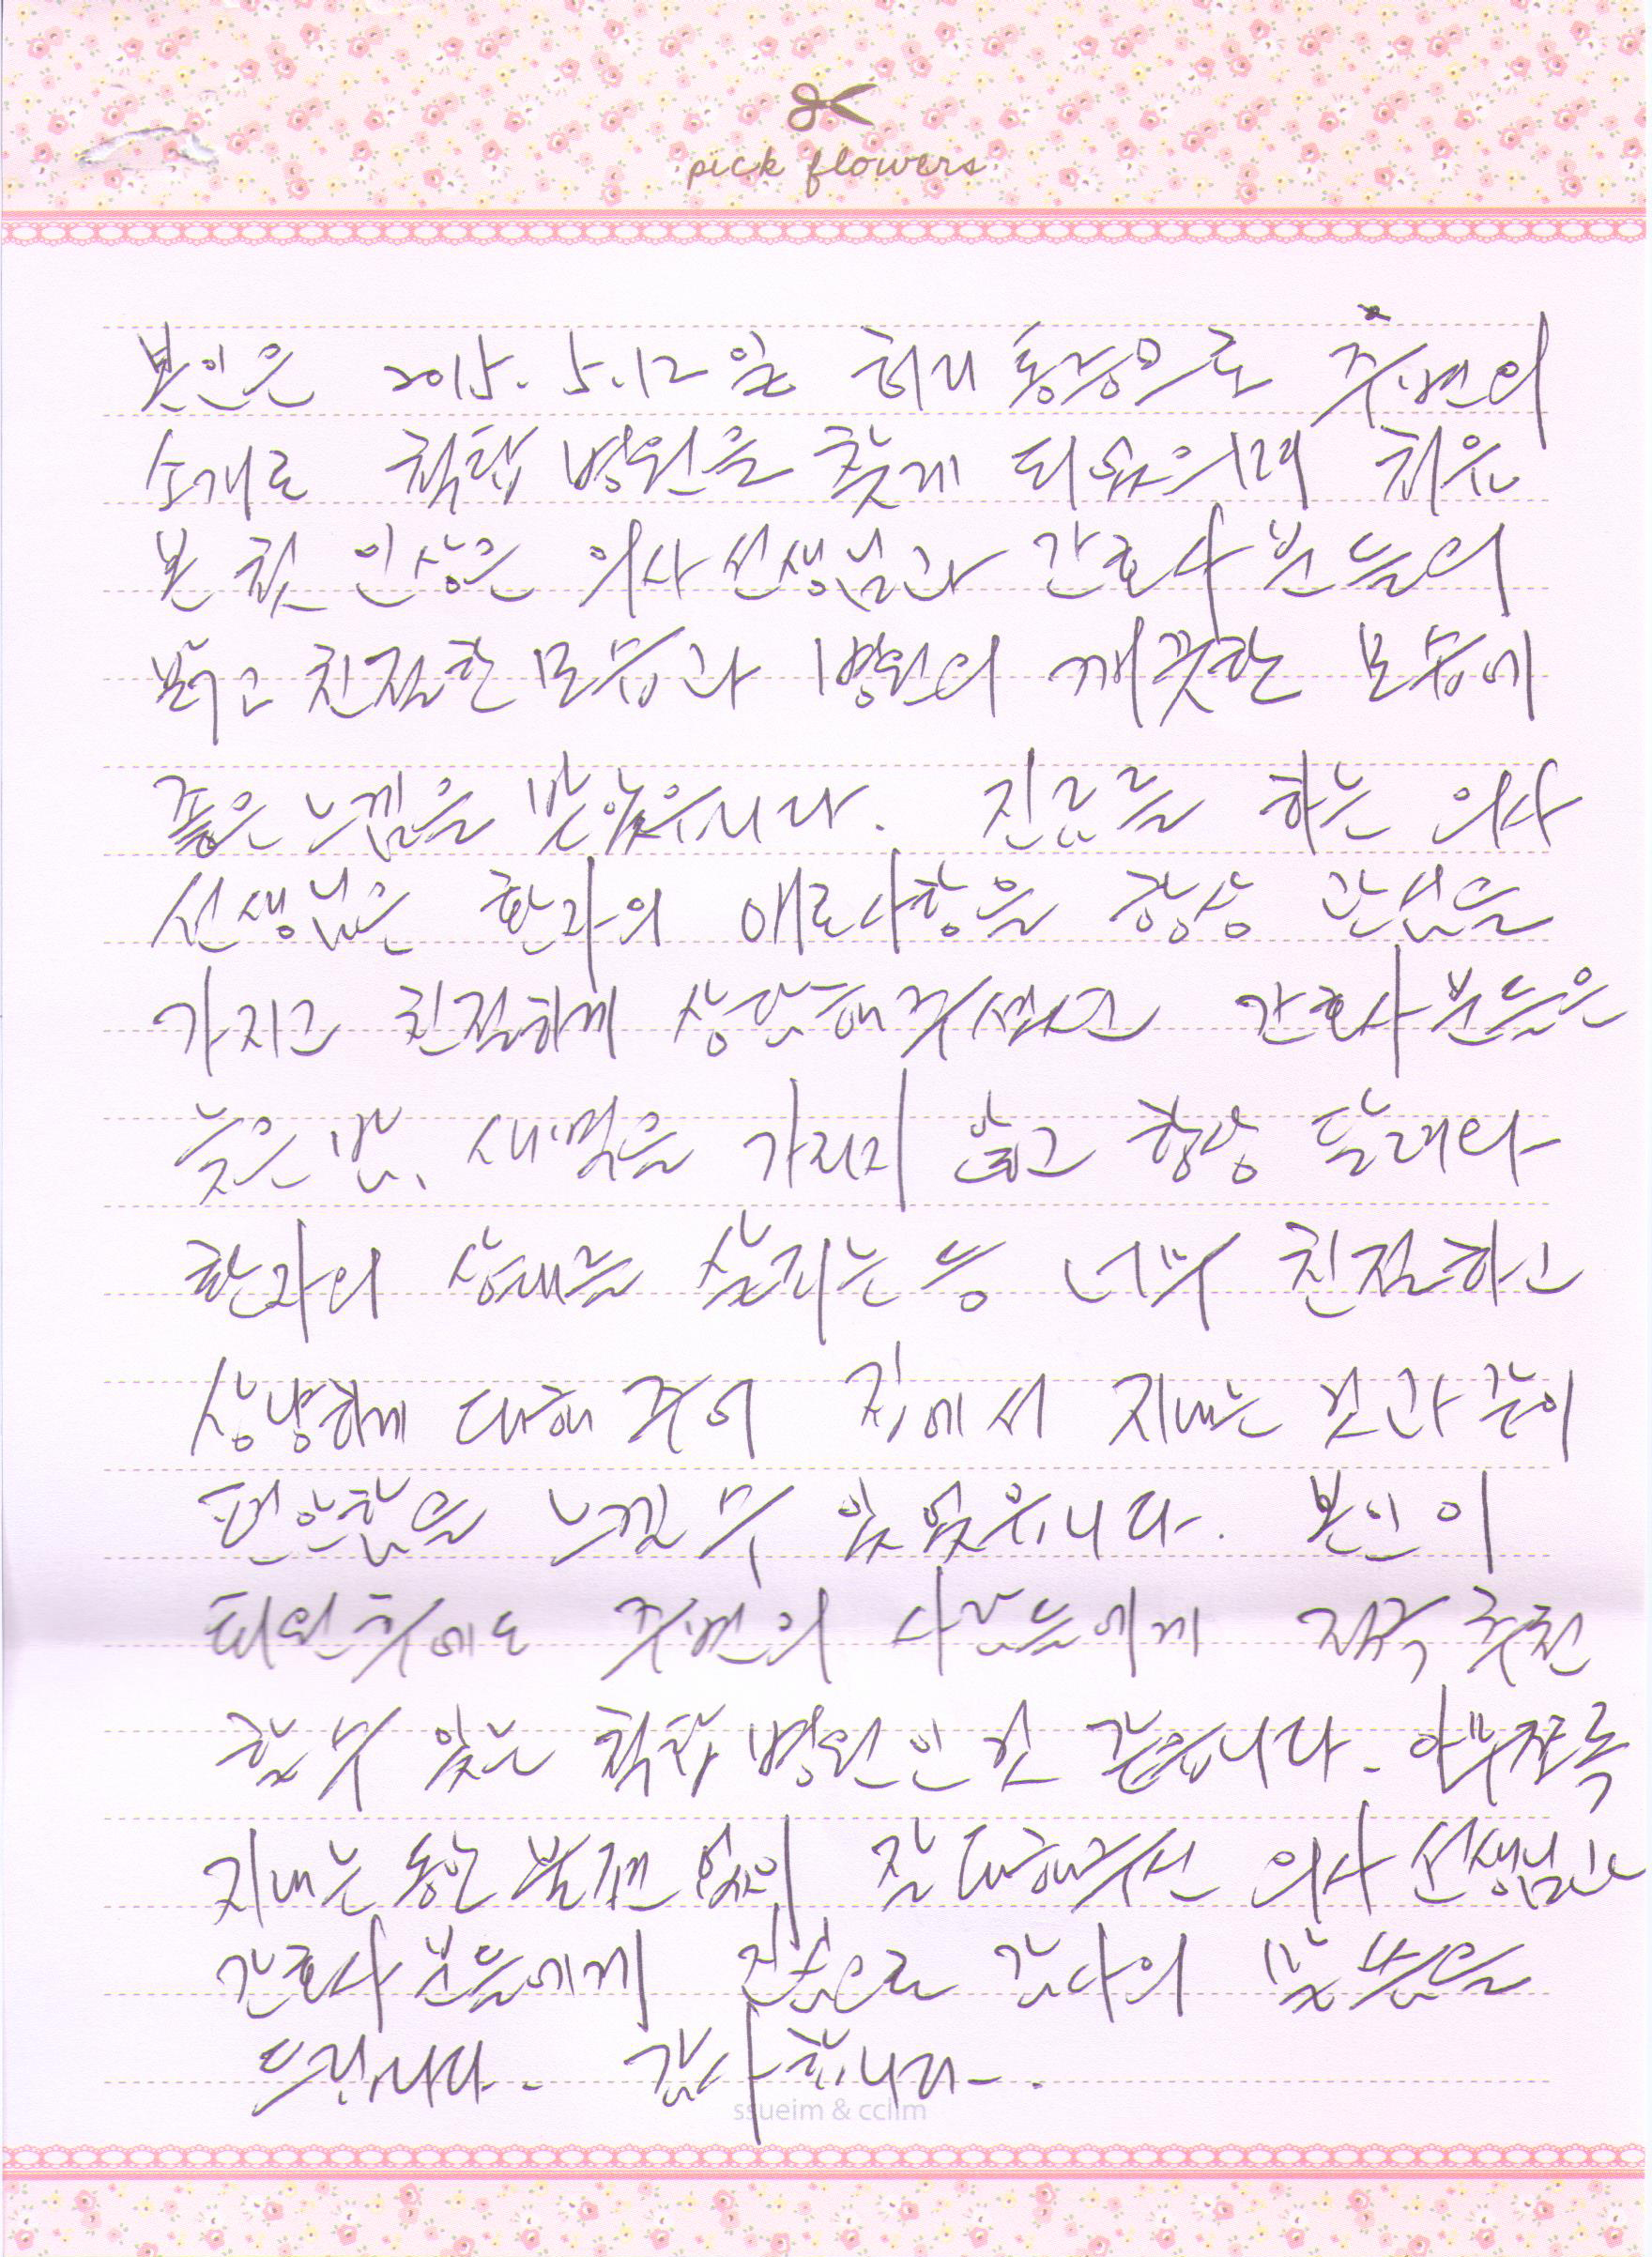 pick flowers
본인은 2015. 5. 12일 허리 통증으로 주변의
소개로 척탑병원을 찾게 되었으며 처음
본 첫 인상은 의사선생님과 간호사분들의
밝고 친절한 모습과 병원의 깨끗한 모습에
좋은 느낌을 받았습니다. 진료를 하는 의사
선생님은 환자의 애로사항을 항상 관심을
가지고 친절하게 상담해주셨고 간호사분들은
늦은 밤, 새벽을 가리지 않고 항상 달려와
환자의 상태를 살피는 등 너무 친절하고
상냥하게 대해 주어 집에서 지내는 것과 같이
편안함을 느낄 수 있었습니다. 본인이
퇴원후에도 주변의 사람들에게 적극 추천
할 수 있는 척탑병원인 것 같습니다. 아무쪼록
지내는 동안 불편 없이 잘 대해주신 의사선생님과
간호사분들에게 진심으로 감사의 말씀을
드립니다. 감사합니다.
ssueim & cclim